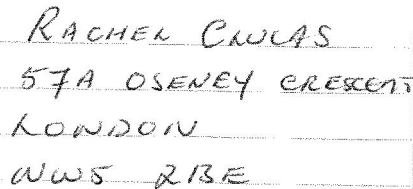 RACHEL CLUCAS
57A OSENEY CRESCENT
LONDON
NW5 2BE